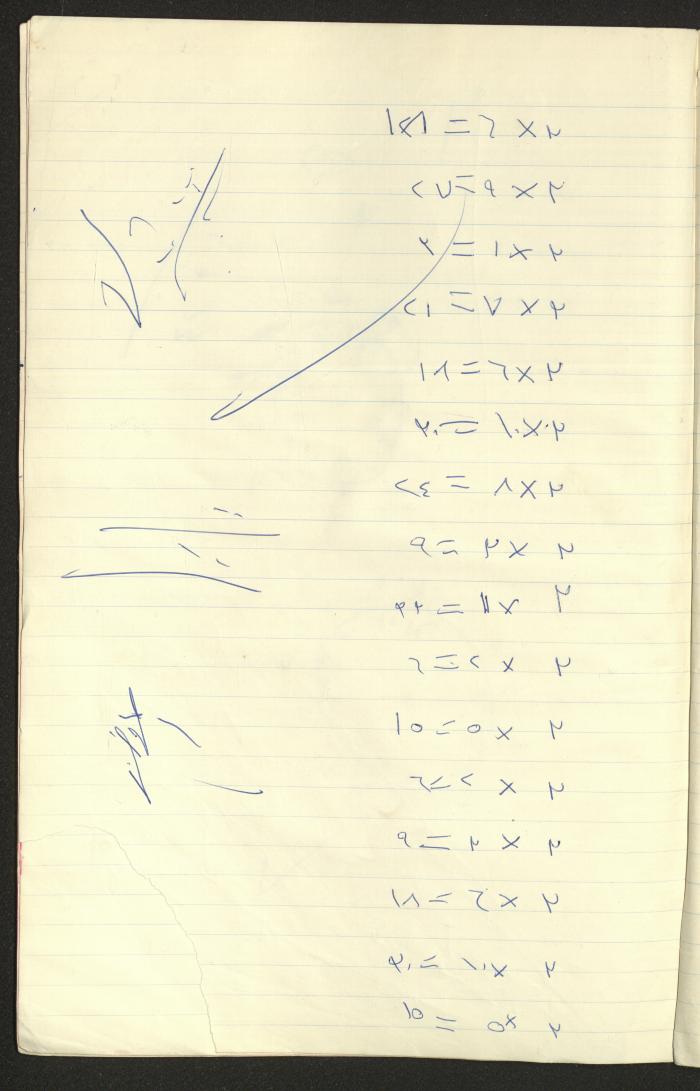 ٣ × ٦ = ١٨
٣ × ٩ = ٢٧
٣ × ١ = ٣
٣ × ٧ = ٢١
٣ × ٦ = ١٨
٣ × ١٠ = ٣٠
٣ × ٨ = ٢٤
٣ × ٣ = ٩
٣ × ١١ = ٣٣
٣ × ٢ = ٦
٣ × ٥ = ١٥
٣ × ٢ = ٦
٣ × ٣ = ٩
٣ × ٦ = ١٨
٣ × ١٠ = ٣٠
٣ × ٥ = ١٥